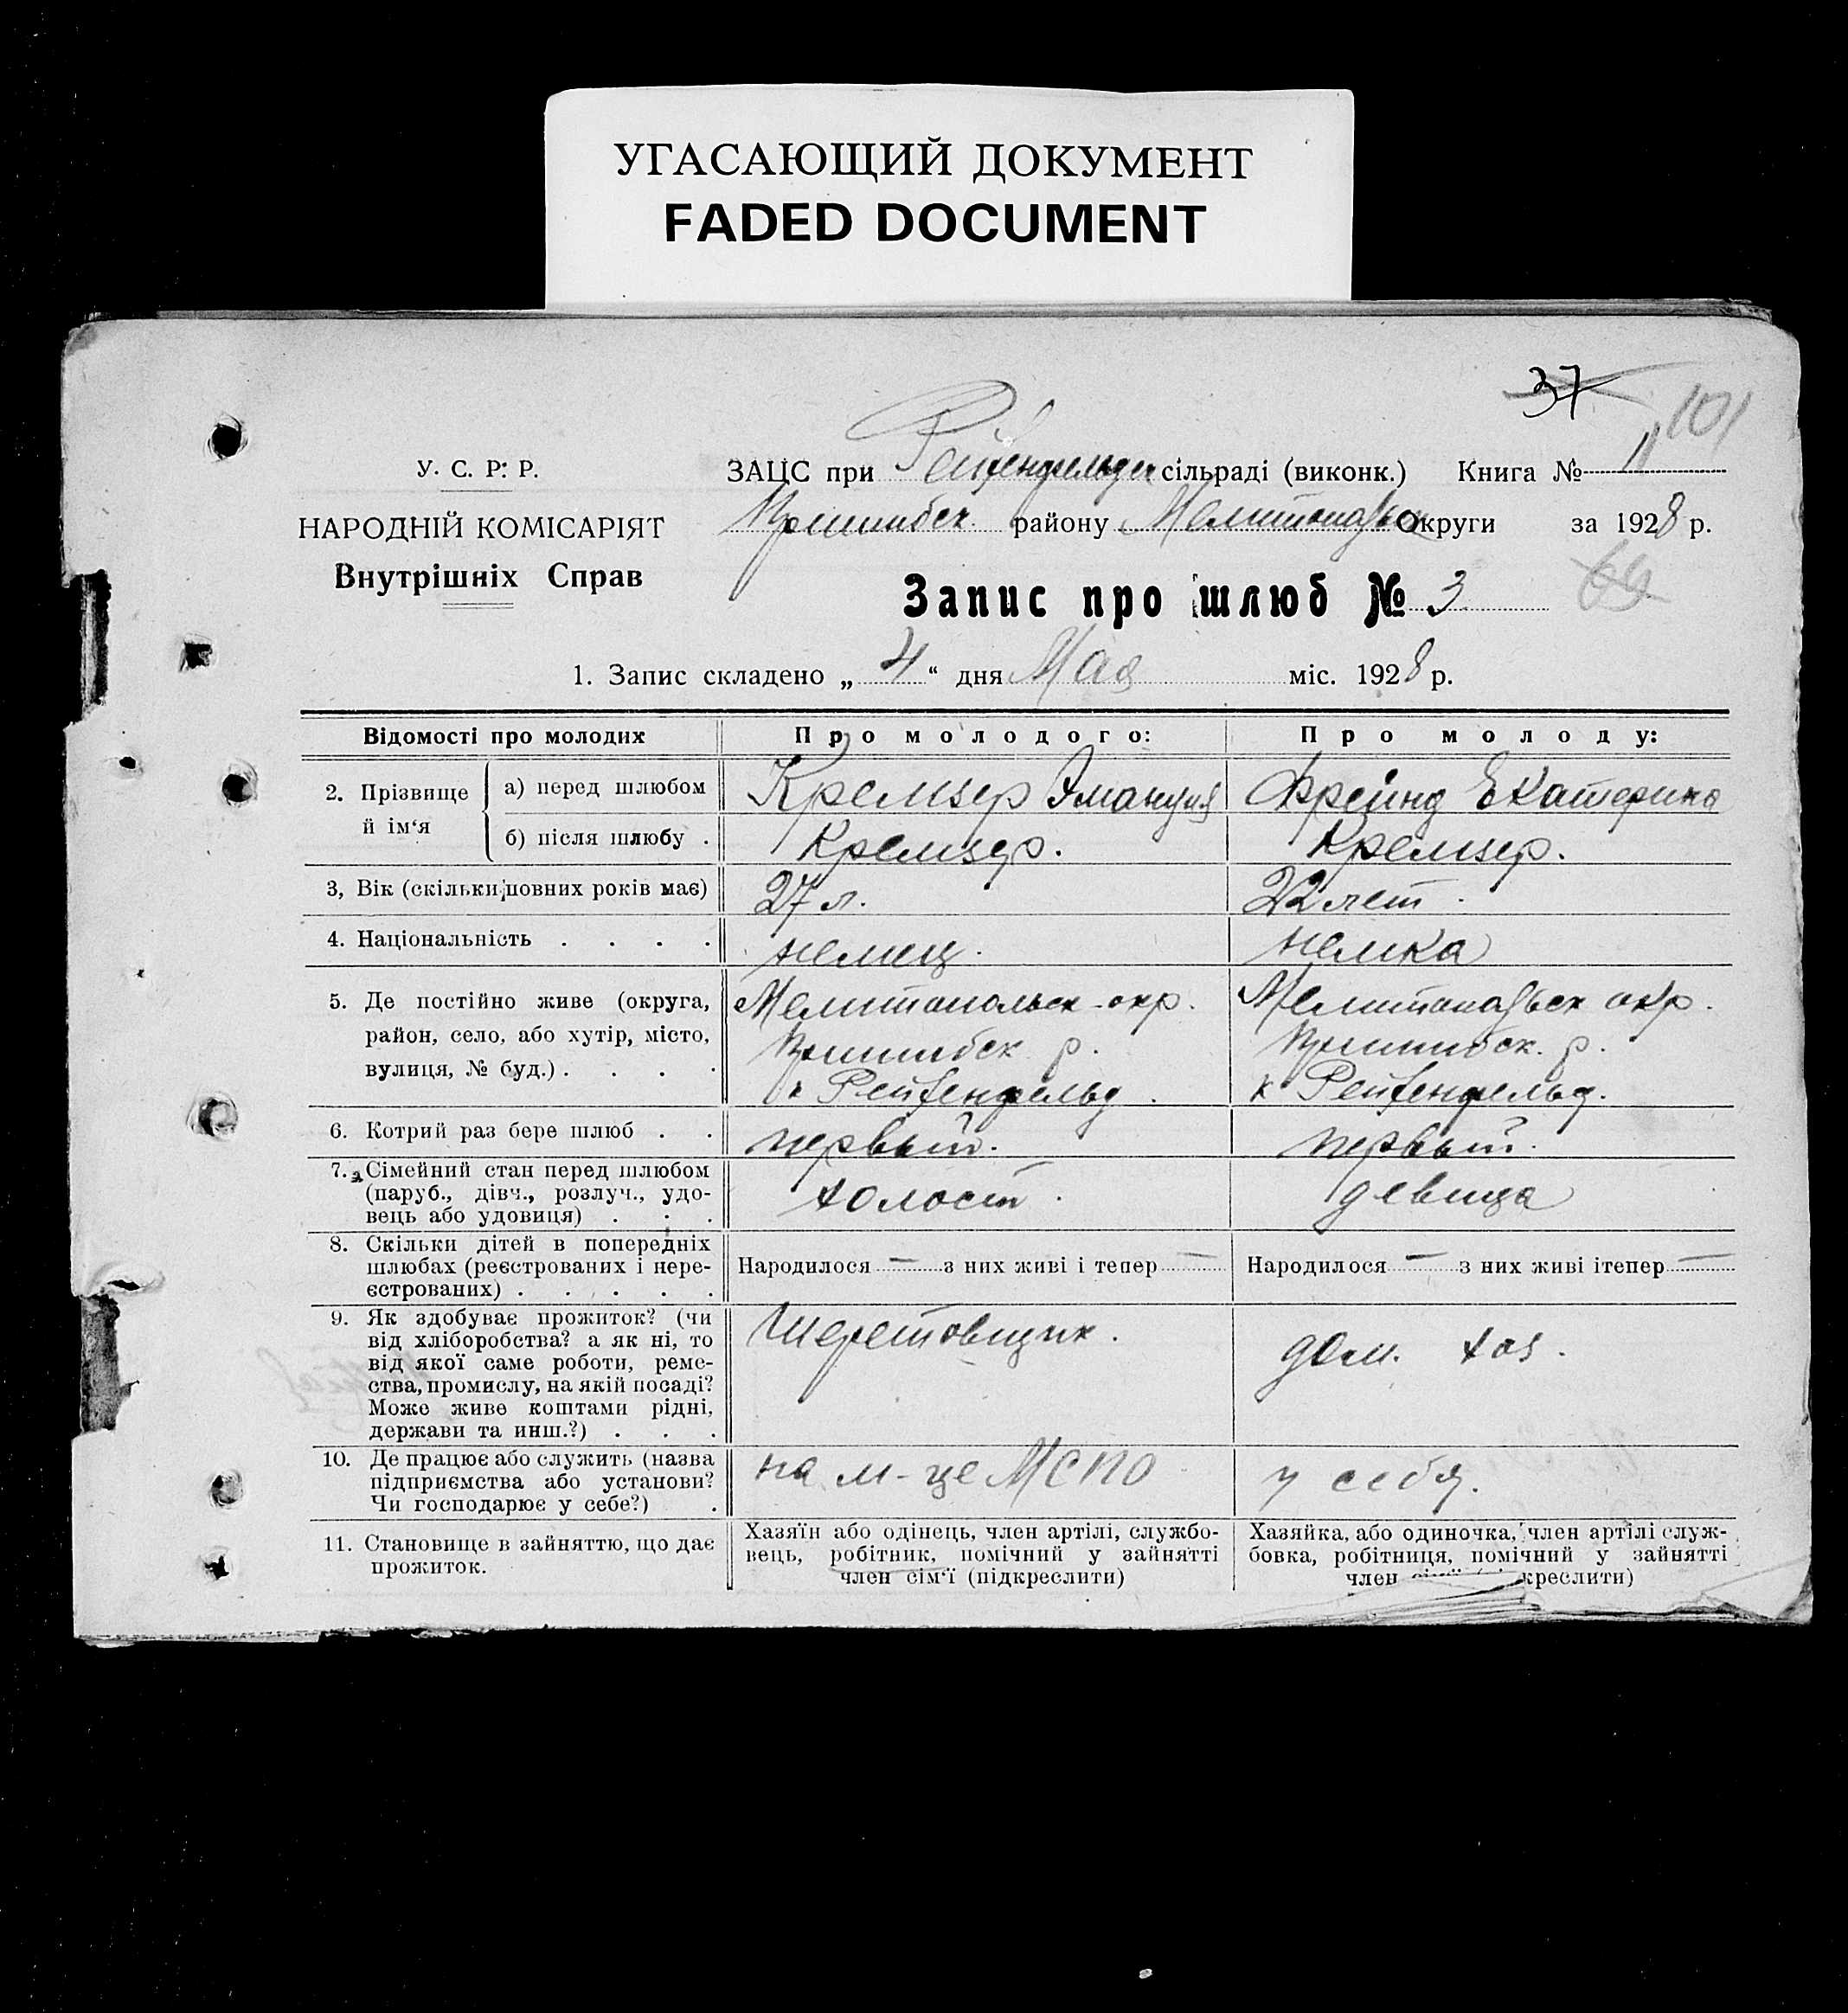 УГАСАЮЩИЙ ДОКУМЕНТ
FADED DOCUMENT
37
101
У. С. Р. Р.
НАРОДНІЙ КОМІСАРІЯТ
Внутрішніх Справ
ЗАЦС при Рейхенфельдск сільраді (виконк.) Книга № 11
Пришибск. району Мелитопольск Округи за 1928 р.
Запис про шлюб № 3
69
1. Запис складено „ 4 “ дня Мая міс. 1928 р.
Відомості про молодих
Про молодого:
Про молоду:
2. Прізвище й ім‘я
а) перед шлюбом
Кремзер Эмануил
Фрейнд Екатерина
б) після шлюбу .
Кремзер.
Кремзер.
3, Вік (скільки повних років має)
27 л.
22 лет.
4. Національність . . . .
немец.
немка
5. Де постійно живе (округа,
район, село, або хутір, місто,
вулиця, № буд.) . . . .
Мелитопольск. окр.
Пришибск р.
к Рейхенфельд.
Мелитопольск окр.
Пришибск. р.
к Рейхенфельд.
6. Котрий раз бере шлюб . .
первый.
первый.
7. Сімейний стан перед шлюбом
(паруб., дівч., розлуч., удо-
вець або удовиця) . . .
холост.
девица
8. Скільки дітей в попередніх
шлюбах (реєстрованих і нере-
єстрованих) . . . . .
Народилося — з них живі і тепер —
Народилося — з них живі ітепер —
9. Як здобуває прожиток? (чи
від хліборобства? а як ні, то
від якої саме роботи, реме-
ства, промислу, на якій посаді?
Може живе коштами рідні,
держави та инш.?) . . .
Шеретовщик.
дом. хоз.
10. Де працює або служить (назва
підприємства або установи?
Чи господарює у себе?) .
на м-це МСПО
у себя.
11. Становище в зайняттю, що дає
прожиток.
Хазяїн або одінець, член артілі, службо-
вець, робітник, помічний у зайнятті
член сім‘ї (підкреслити)
Хазяйка, або одиночка, член артілі служ-
бовка, робітниця, помічний у зайнятті
член креслити)